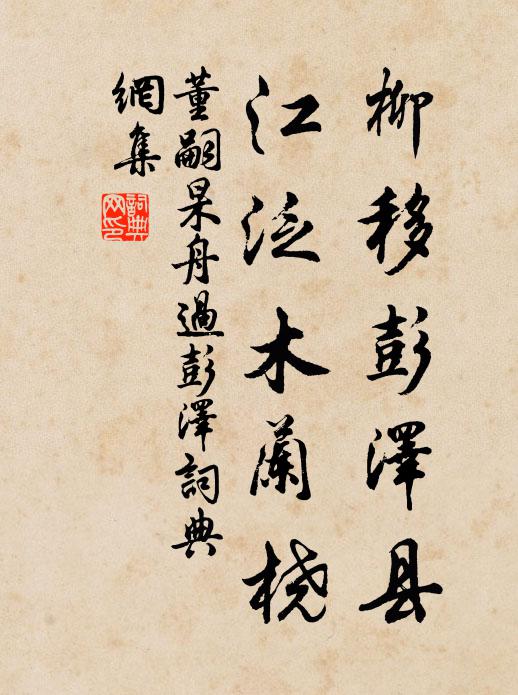 柳移彭澤县
江泛木蘭桡
董嗣杲舟過彭澤詞典
網集
詞典網印